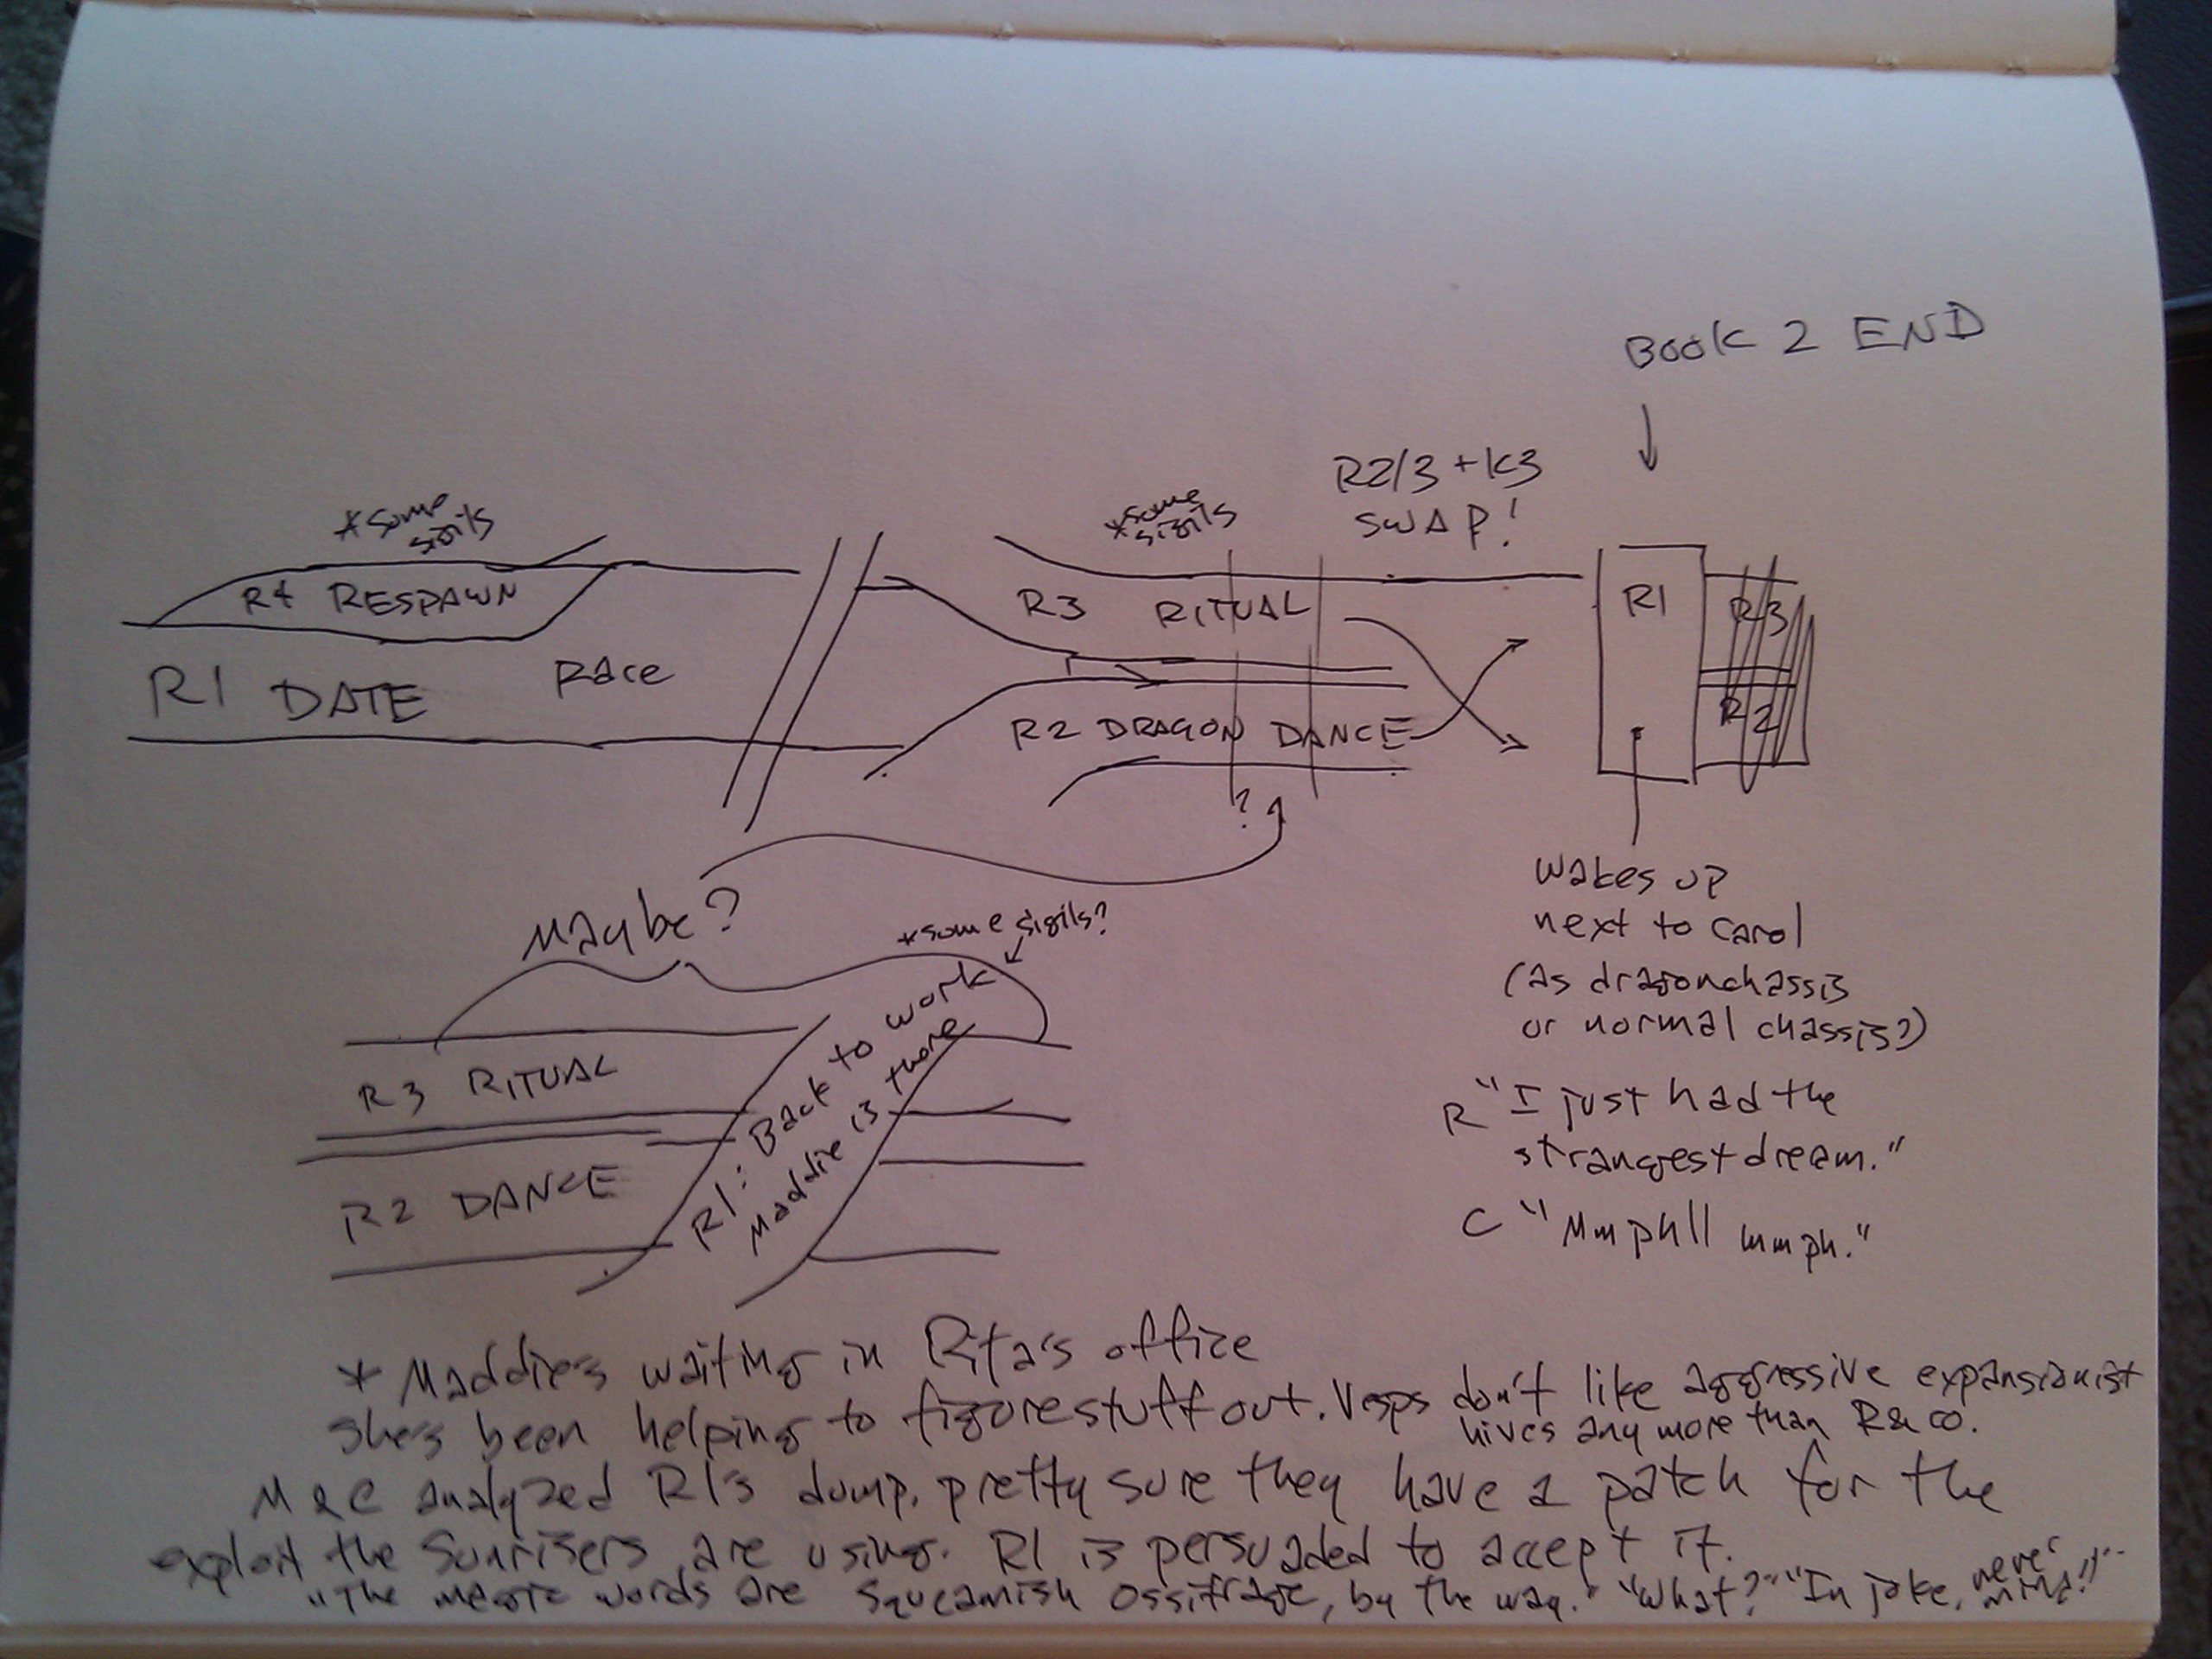 BOOK 2 END
R2/3 + K3
SWAP!
*some
sigils
*some
sigils
R4 RESPAWN
R1 DATE
Race
R3 RITUAL
R2 DRAGON DANCE
R1
R3
R2
?
Maybe?
*some sigils?
R3 RITUAL
R2 DANCE
R1: Back to work
Maddie is there
wakes up
next to Carol
(as dragonchassis
or normal chassis?)
R "I just had the
strangest dream."
C "Mmphll mmph."
* Maddie's waiting in Rita's office
She's been helping to figure stuff out. Vesps don't like aggressive expansionist
hives any more than R & co.
M & C analyzed R1's dump, pretty sure they have a patch for the
exploit the Sunrisers are using. R1 is persuaded to accept it.
"The magic words are squeamish ossifrage, by the way." "What?" "In joke, never
mind!"